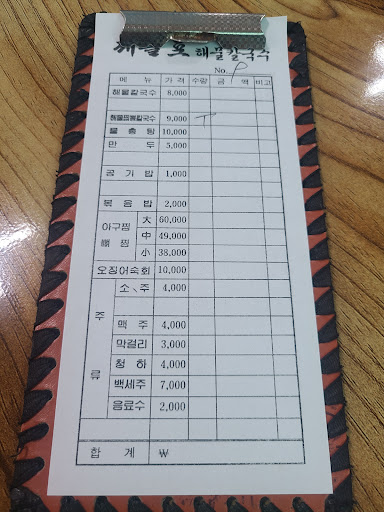 해물칼국수
No.
메 뉴 가 격 수량 금 액 비고
해물칼국수 8,000
9,000
물 총 탕 10,000
만 두 5,000
공 기 밥 1,000
볶 음 밥 2,000
아구찜 大 60,000
찜 中 49,000
小 38,000
오징어숙회 10,000
주 류
소 주 4,000
맥 주 4,000
막걸리 3,000
청 하 4,000
백세주 7,000
음료수 2,000
합 계 ₩